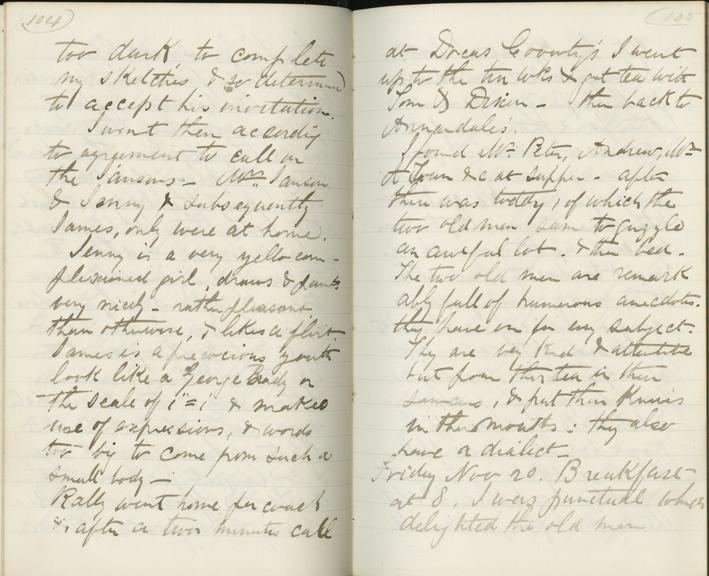 104
too dark to complete
my sketches & so determined
to accept his invitation.
I went then according
to agreement to call on
the Jansons - Mrs Janson
& Jenny & subsequently
James, only were at home.
Jenny is a very yellow com-
plexioned girl, draws & paints
very nicely - rather pleasant
than otherwise, & likes a flirt.
James is a precocious youth
look like a George Brady on
the scale of 1" = 1' & makes
use of expressions, & words
too big to come from such a
small body -
Rally went home for coach
&. after a two minutes call
105
at Dreas Coventy's I went
up to the & got tea with
Tom & Dixon - then back to
Annandale's.
I found Mr Peter, Andrew, Mr
& at supper - after
there was toddy, of which the
two old men sam to guzzle
an awful lot. & then bed.
The two old men are remark
ably full of humerous anecdotes.
they have on for evy subject-
Thy are vey kind & attentive
but pour thir tea in their
saucers, & put their knives
in their mouths: they also
have a dialect -
Friday Nov 20. Breakfast
at 8. I was punctual which
delighted the old man